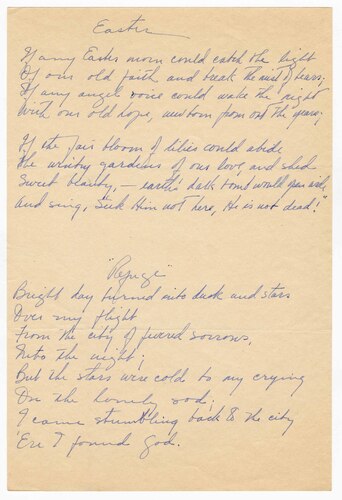 Easter
If any Easter morn could catch the light
Of our old faith and break the mist of tears;
If any angel voice could wake the night
With our old hope, newborn from out the years;
If the fair bloom of lilies could abide
The wintry gardens of our love, and shed
Sweet beauty, – earth's dark tomb would open wide
And sing, "Seek Him not here, He is not dead!"
"Refuge"
Bright day turned into dusk and stars
Over my flight
From the city of fevered sorrows,
Into the night;
But the stars were cold to my crying
On the lonely sod;
I came stumbling back to the city
'Ere I found God.